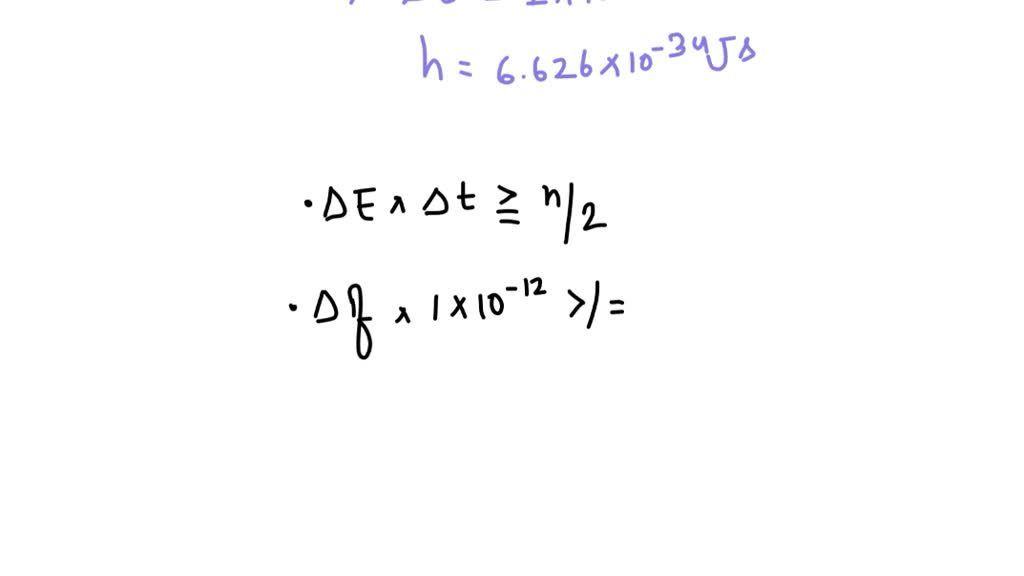 h = 6.626×10⁻³⁴Js
· ΔE × Δt ≥ h/2
· Δf × 1×10⁻¹² >/=